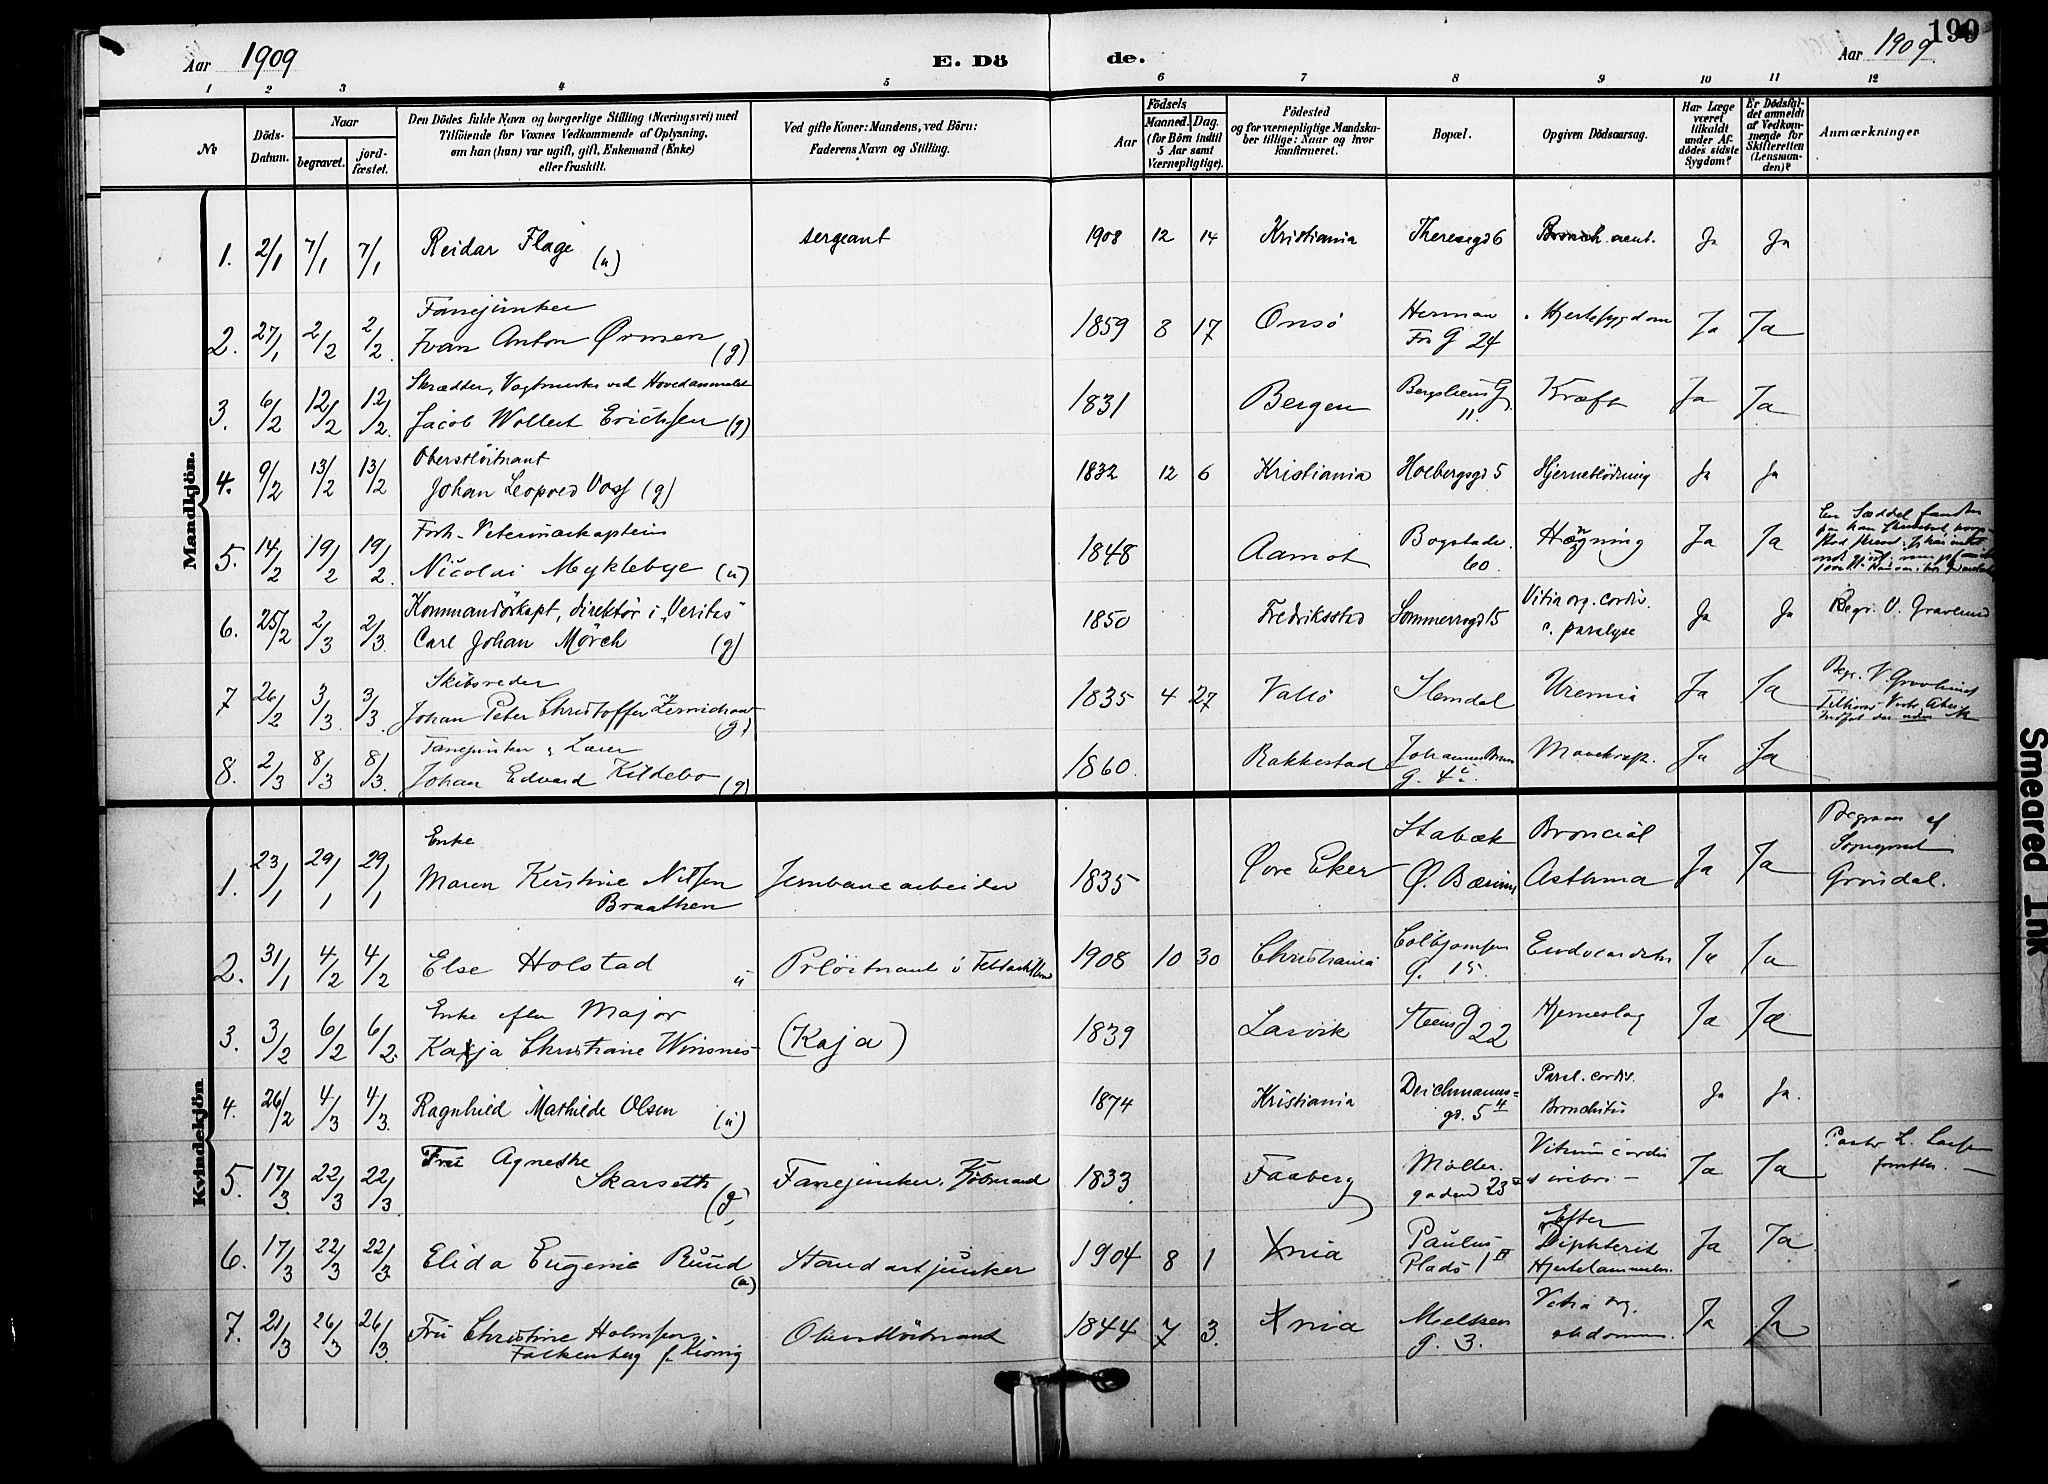 Aar 1909
E. Dö
de.
Aar 1909
190
1 2 3 4 5 6 7 8 9 10 11 12
No
Döds-
Datum.
Naar
begravet.
jord-
fæstet.
Den Dödes fulde Navn og borgerlige Stilling (Næringsvei) med
Tilföiende for Voxnes Vedkommende af Oplysning,
om han (hun) var ugift, gift, Enkemand (Enke)
eller fraskilt.
Ved gifte Koner: Mandens, ved Börn:
Faderens Navn og Stilling.
Födsels
Aar
Maaned.
Dag.
(for Börn indtil
5 Aar samt
Værnepligtige).
Födested
og for værnepligtige Mandska-
ber tillige: Naar og hvor
konfirmeret.
Bopæl.
Opgiven Dödsaarsag.
Har Læge
været
tilkaldt
under Af-
dödes sidste
Sygdom?
Er Dödsfal-
det anmeldt
af Vedkom-
mende for
Skifteretten
(Lensman-
den)?
Anmærkninger
Mandkjön.
1. 2/1 7/1 7/1 Reidar Flage (u) sergeant 1908 12 14 Kristiania Theresegd 6 Bronch. acut. Ja Ja
Fanejunker
2. 27/1 2/2 2/2 Ivan Anton Ørmen (g) 1859 8 17 Onsö Herman Fr G 24 Hjertesygdom Ja Ja
Skrædder, Vagtmester ved Hovedarsenalet
3. 6/2 12/2 12/2 Jacob Wollert Erichsen (g) 1831 Bergen Bergsliens G. 11. Kræft Ja Ja
Oberstlöitnant
4. 9/2 13/2 13/2 Johan Leopold Voss (g) 1832 12 6 Kristiania Holbergsgd 5 Hjerneblödning Ja Ja
Forh. Veterinærkaptein
5. 14/2 19/2 19/2 Nicolai Myklebye (u) 1848 Aamot Bogstadv. 60. Hængning Ja Ja
En Sæddel fandtes
Kommandörkapt, direktör i "Veritas"
6. 25/2 2/3 2/3 Carl Johan Mörch (g) 1850 Fredriksstad Sommerrogd 15 Vitia org. cordis. c. paralyse Ja Ja Begr. V. Gravlund
Skibsreder
7 26/2 3/3 3/3 Johan Peter Christoffer (g) 1835 4 27 Vallö Slemdal Uremia Ja Ja Begr. V. Gravlund
Fanejunker, Lærer
8. 2/3 8/3 8/3 Johan Edvard Kildebo (g) 1860 Rakkestad Johannes Bruns G. 4 Mavekræft. Ja Ja
Kvindekjön
Enke
1. 23/1 29/1 29/1 Maren Kirstine Nilsen Braathen Jernbanearbeider 1835 Øvre Eker Stabæk Ø. Bærum Bronciál Asthma Ja Ja Begraves af Sogneprest Gröndal.
2. 31/1 4/2 4/2 Else Holstad u Prlöitnant i 1908 10 30 Christiania Colbjørnsen G. 15. Endocarditis Ja Ja
Enke efter Major
3. 3/2 6/2 6/2 Kaja Christiane Winsnes (Kaja) 1839 Larvik Steens G 22 Hjerneslag Ja Ja
4. 26/2 4/3 4/3 Ragnhild Mathilde Olsen (u) 1874 Kristiania Deichmanns=gd. 5 4 Paral. cordis. Bronchitis Ja Ja.
5. 17/3 22/3 22/3 Fru Agnethe Skarseth (g) Fanejunker, Kjöbmand 1833 Faaberg Möllergaden 23 Vitium cordis Ja Ja Pastor L. Larsen forretter.
6. 17/3 22/3 22/3 Elida Eugenie Ruud (u) Standartjunker 1904 8 1 Xnia Paulus Plads 1 II Efter Diphterit Hjertelammelse. Ja Ja
7. 21/3 26/3 26/3 Fru Christine Holmsen Falkenberg f. König Oberstlöitnant 1844 7 3 Xnia Meltzers g. 3. Vitia org. abdomen. Ja Ja
Smeared Ink